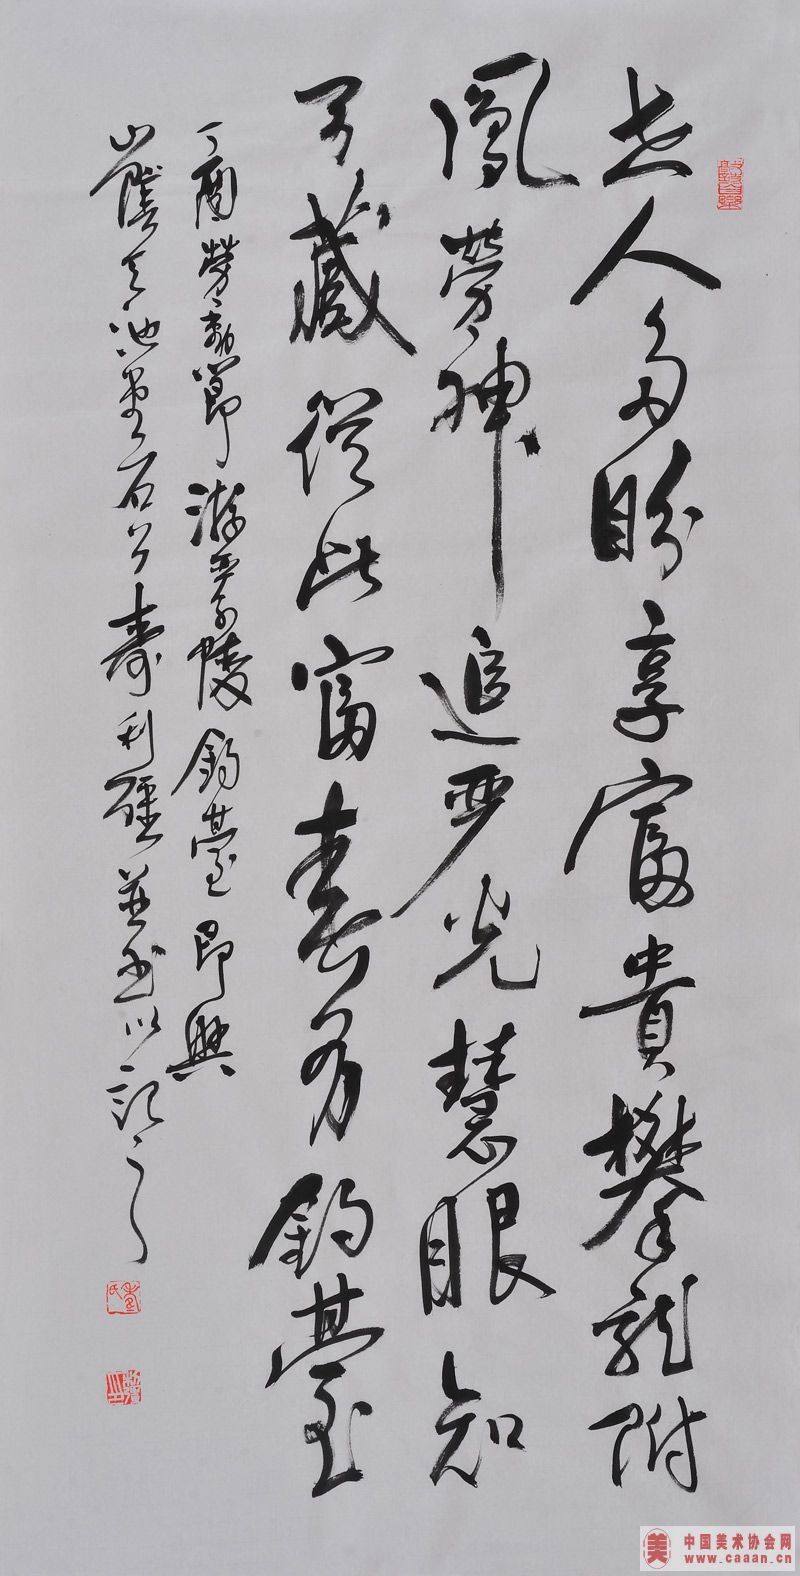 世人多盼享富貴攀龍附
鳳勞神追嚴光慧眼知
弓藏從此富春有釣臺
丁酉勞動節游嚴子陵釣臺即興
山陰天池石公壽利強並書以記之
中国美术协会网
www.caaan.cn
美